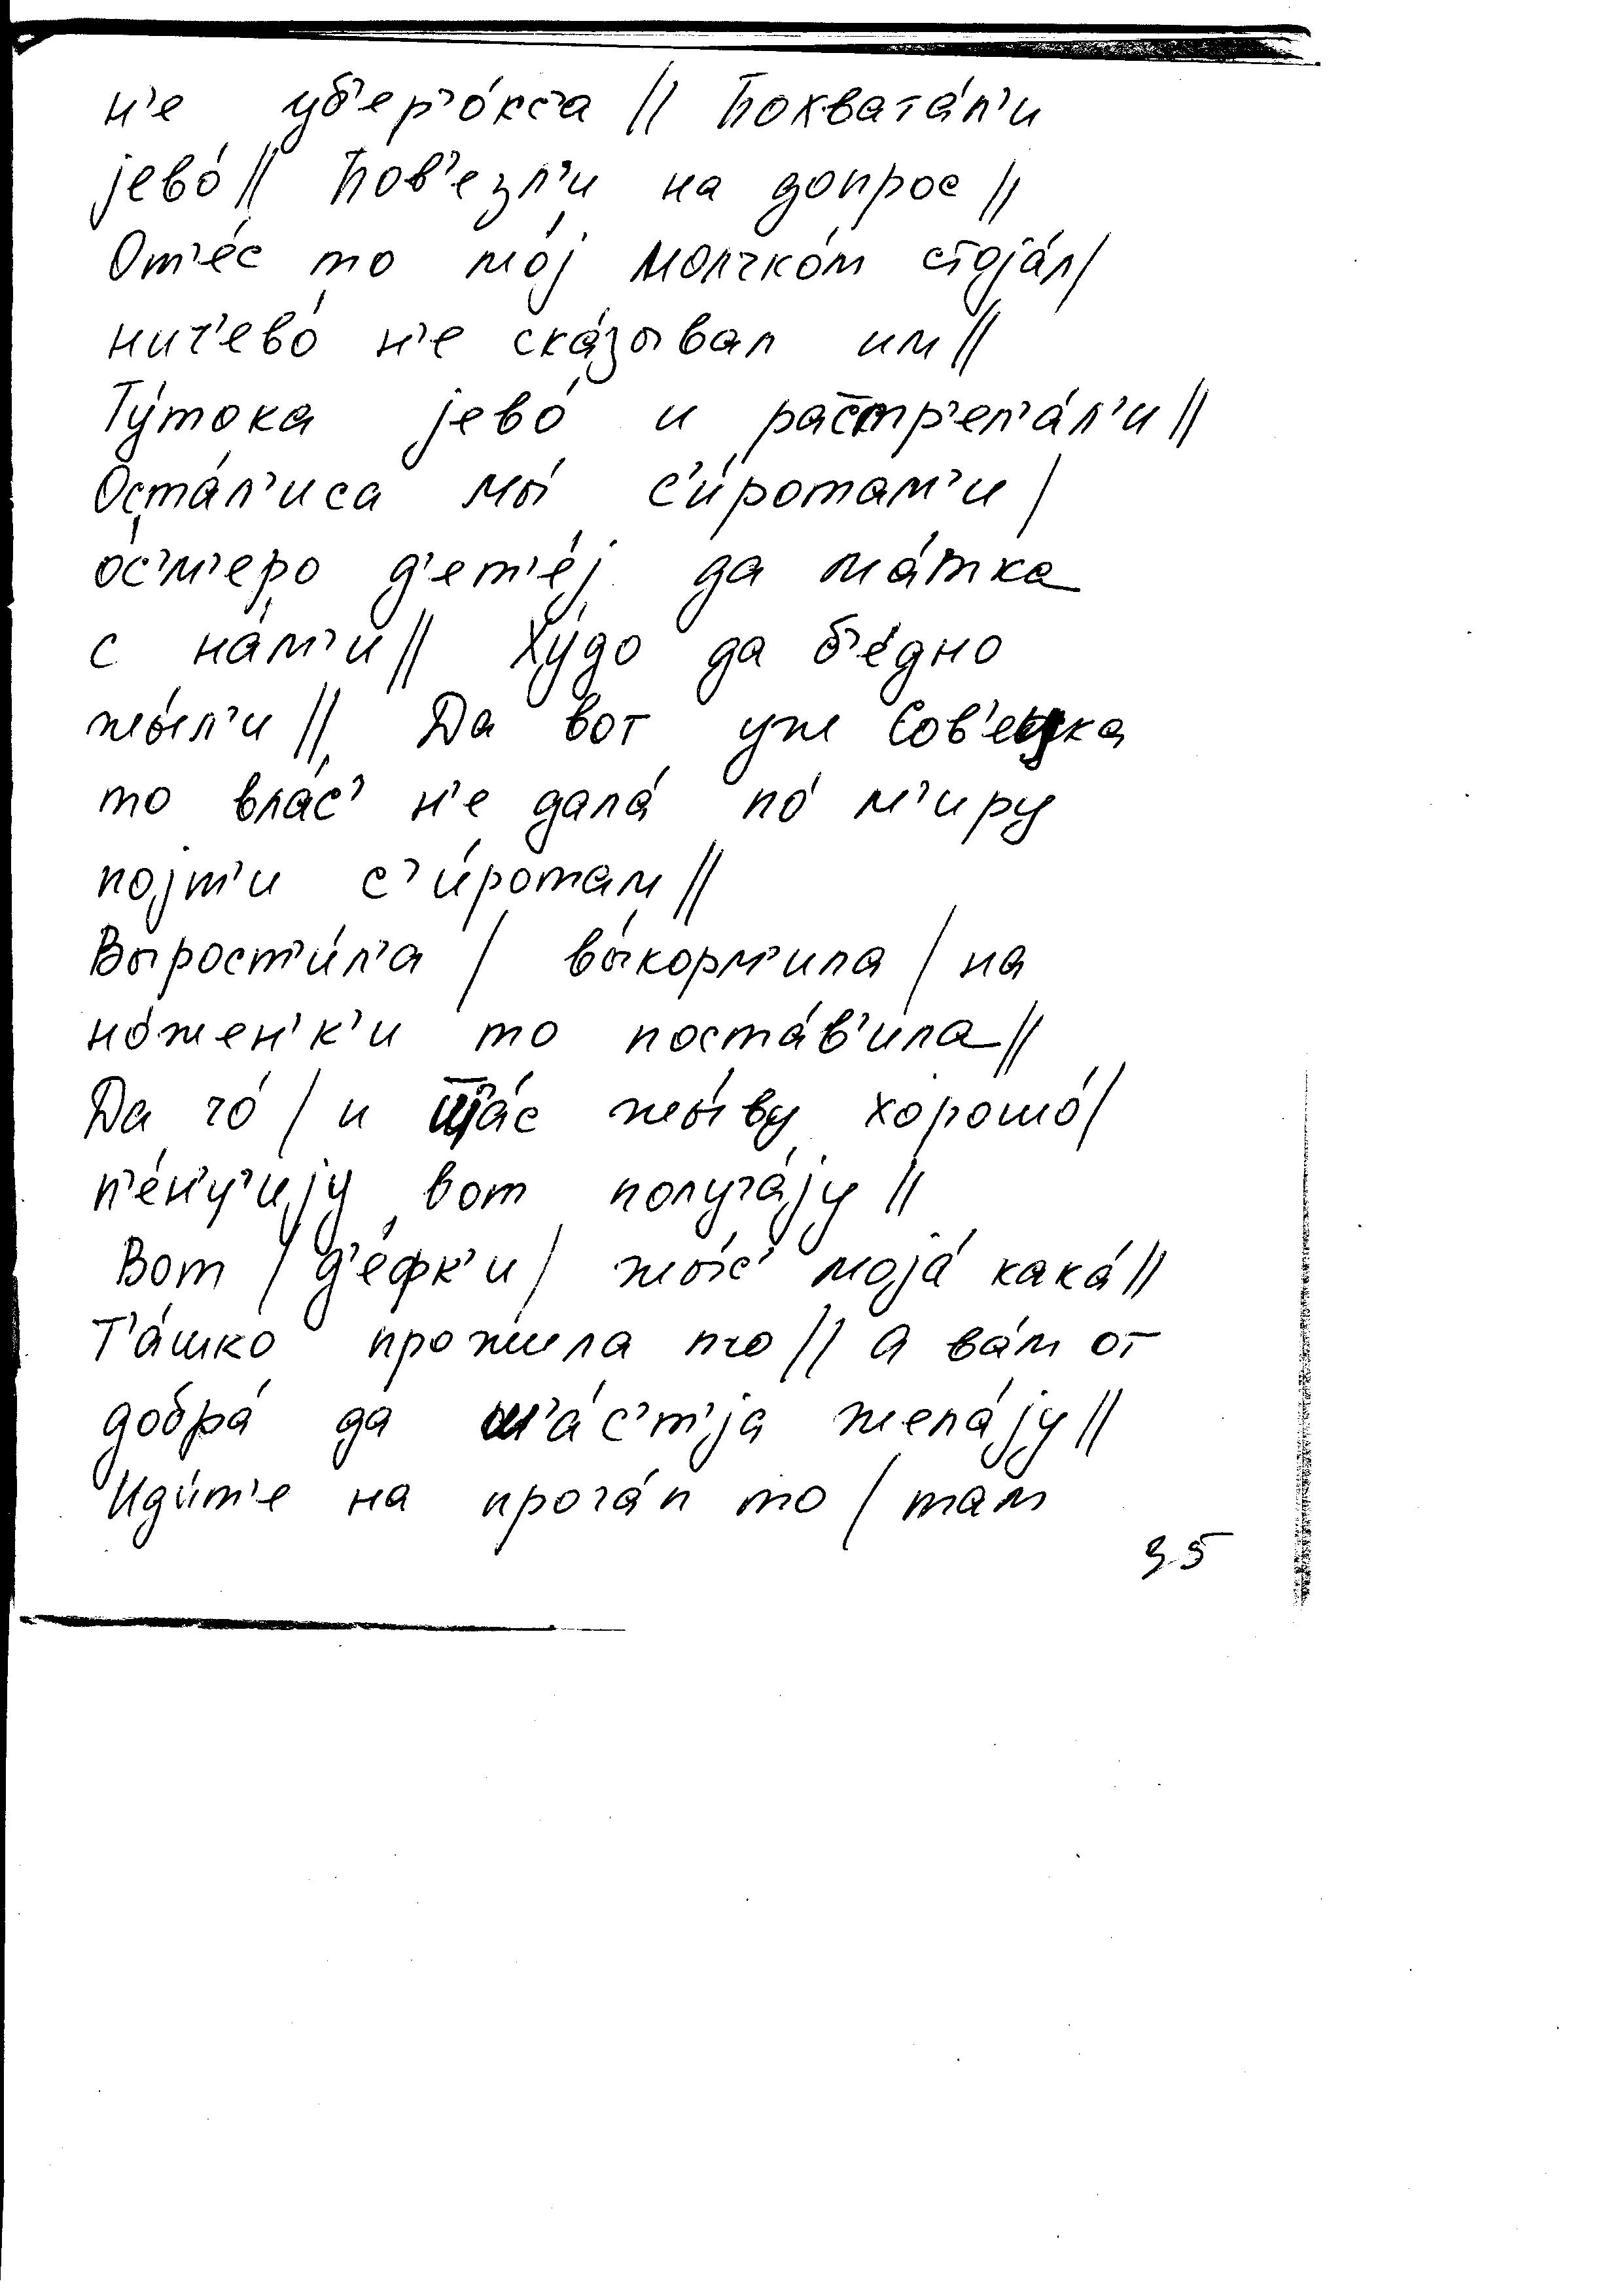 н'е уб'ер'о́кс'а // Похвата́л'и
јево́ // Пов'езл'и на допрос //
От'е́с то мо́ј молчко́м стоја́л /
нич'ево́ н'е ска́зывал им //
Ту́тока јево́ и растр'ел'а́л'и //
Оста́л'иса мы́ с'и́ротам'и /
о́с'м'еро д'ет'е́ј да ма́тка
с на́м'и // Ху́до да б'е́дно
жы́л'и // Да вот уж Сов'ецка
то вла́с' н'е дала́ по́ м'иру
појт'и с'и́ротам //
Вырост'и́л'а / вы́корм'ила / на
но́жен'к'и то поста́в'ила //
Да чо́ / и ша́с жы́ву хорошо́ /
п'е́н'ц'ију вот получа́ју //
Вот / д'е́фк'и / жы́с' моја́ кака́ //
Т'а́шко прожила то // А ва́м от
добра́ да ш'а́с'т'ја жела́ју //
Иди́т'е на прога́л то / там
35